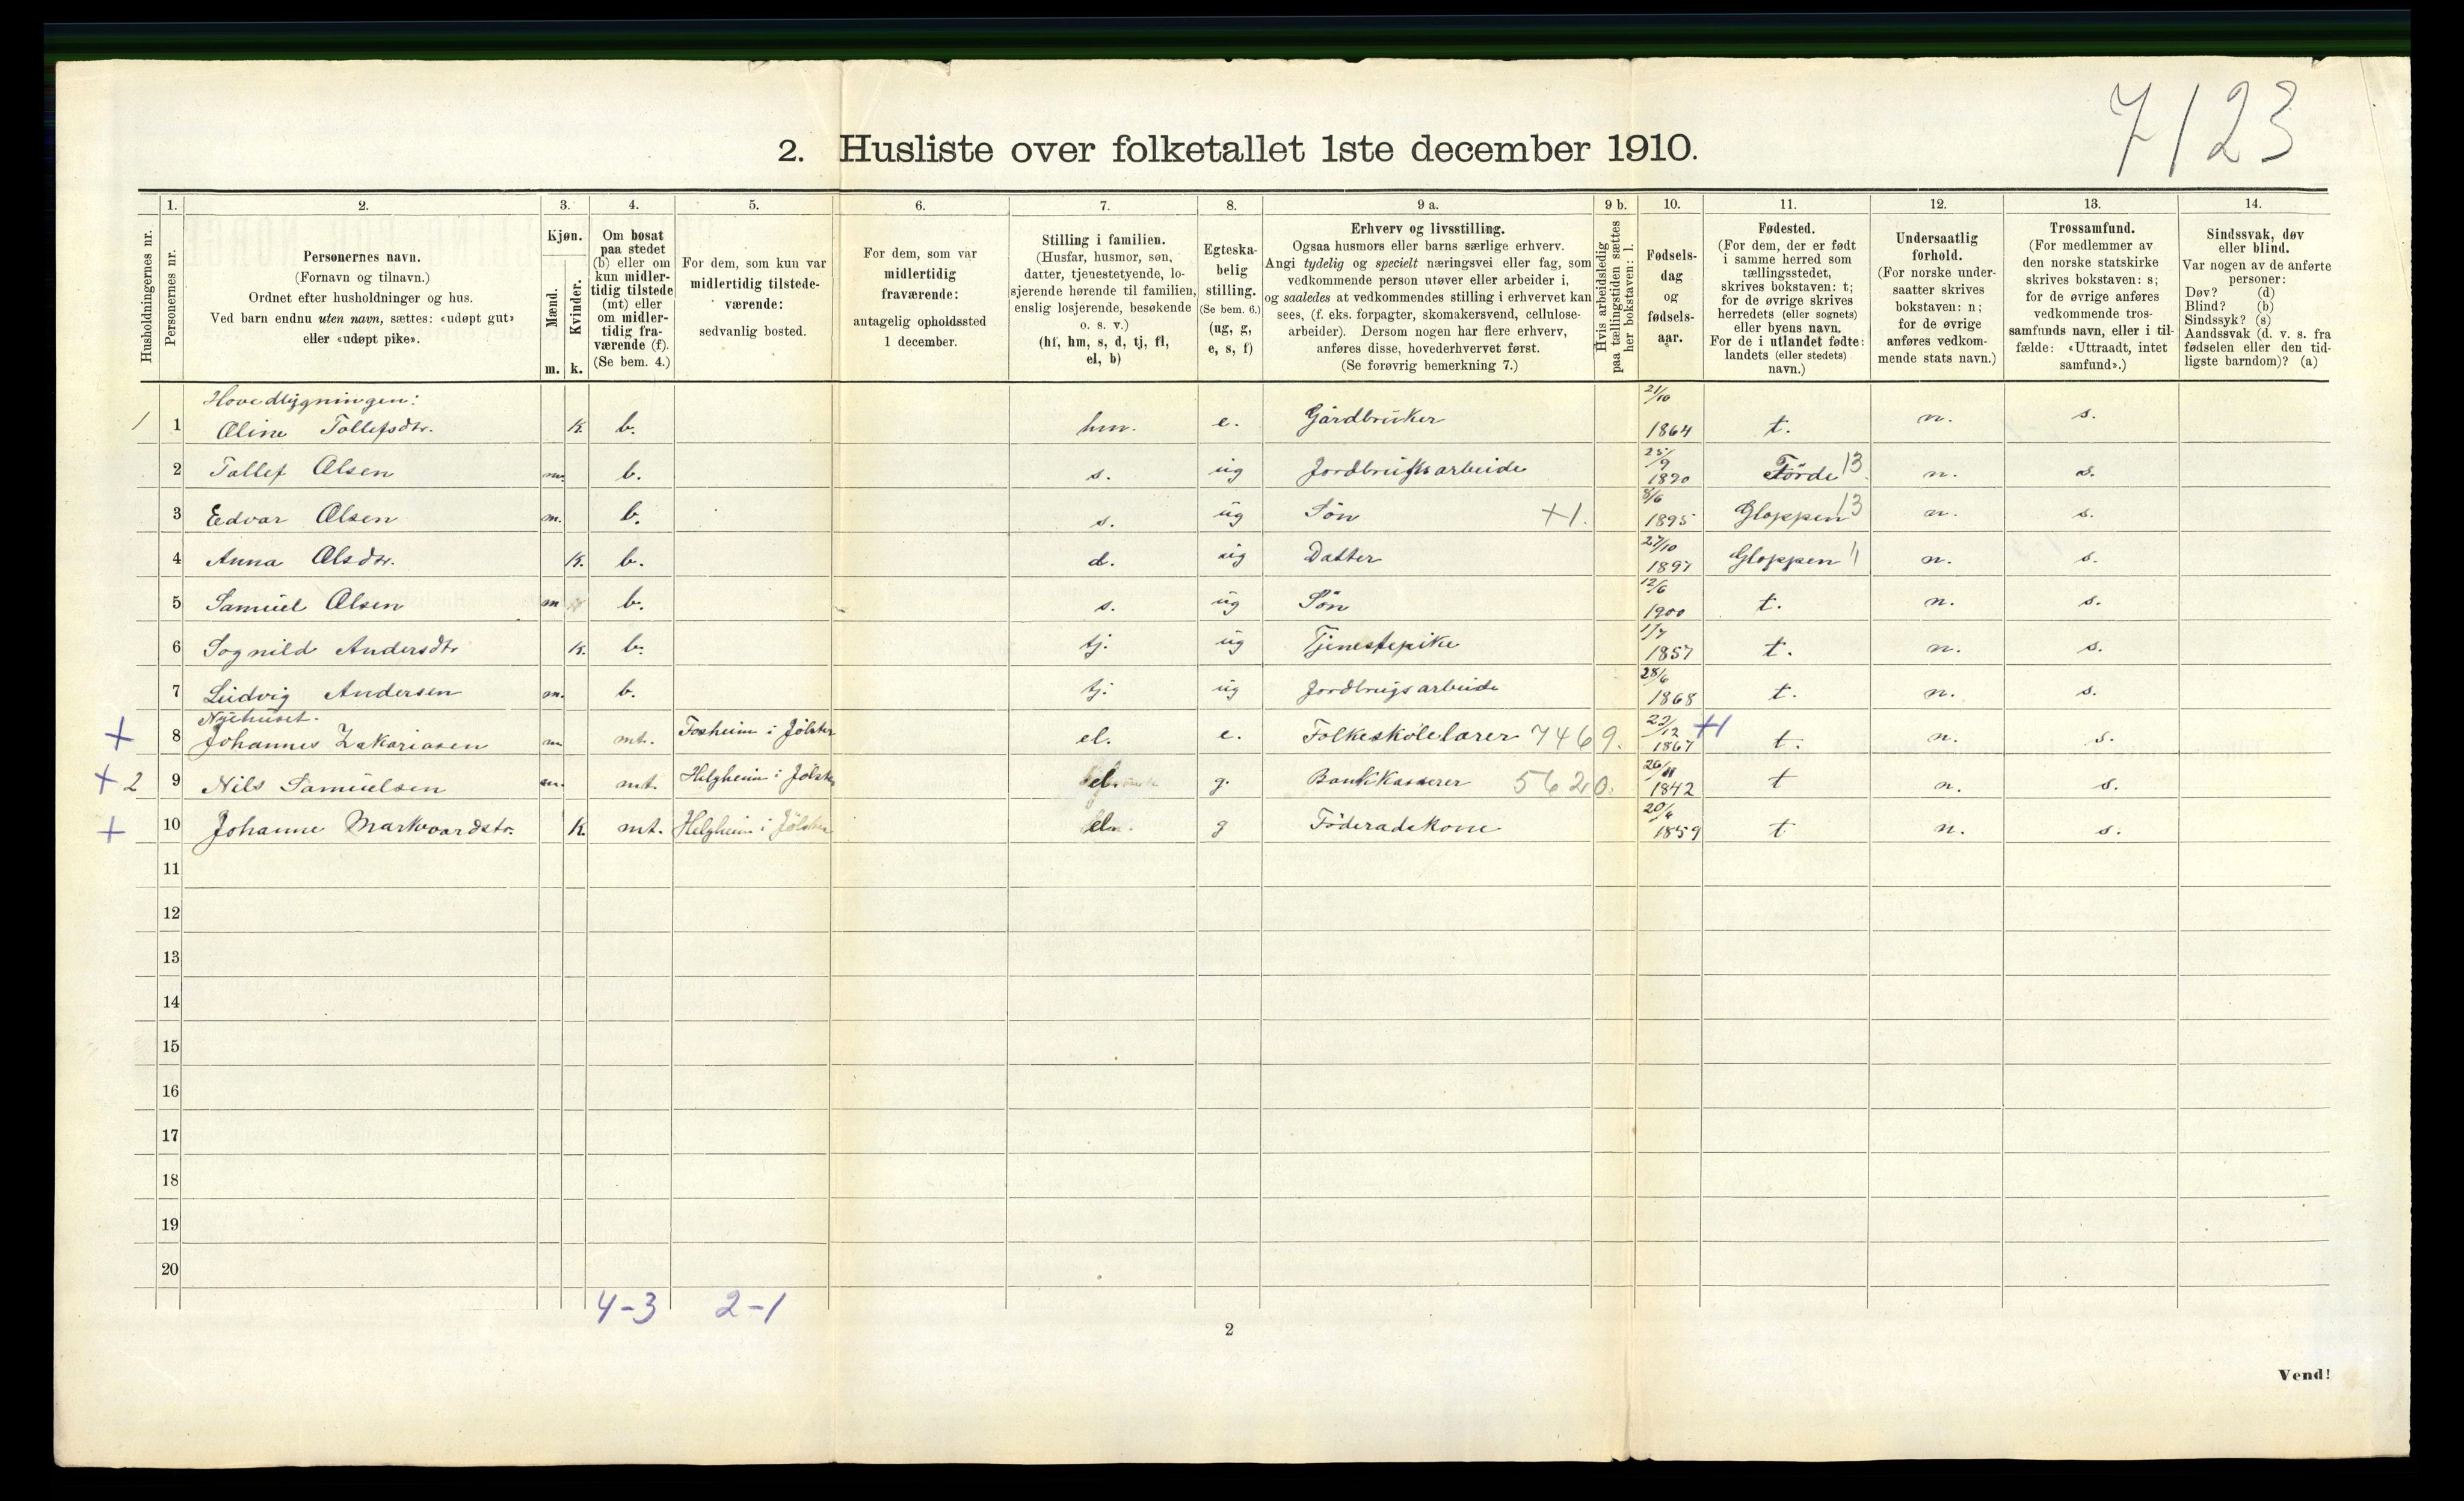 7/23
2. Husliste over folketallet 1ste december 1910.
1. 2. 3. 4. 5. 6. 7. 8. 9 a. 9 b. 10. 11. 12. 13. 14.
Husholdningernes nr.
Personernes nr.
Personernes navn.
(Fornavn og tilnavn.)
Ordnet efter husholdninger og hus.
Ved barn endnu uten navn, sættes: «udøpt gut»
eller «udøpt pike».
Kjøn.
Mænd.
Kvinder.
m. k.
Om bosat
paa stedet
(b) eller om
kun midler-
tidig tilstede
(mt) eller
om midler-
tidig fra-
værende (f).
(Se bem. 4.)
For dem, som kun var
midlertidig tilstede-
værende:
sedvanlig bosted.
For dem, som var
midlertidig
fraværende:
antagelig opholdssted
1 december.
Stilling i familien.
(Husfar, husmor, søn,
datter, tjenestetyende, lo-
sjerende hørende til familien,
enslig losjerende, besøkende
o. s. v.)
(hf, hm, s, d, tj, fl,
el, b)
Egteska-
belig
stilling.
(Se bem. 6.)
(ug, g,
e, s, f)
Erhverv og livsstilling.
Ogsaa husmors eller barns særlige erhverv.
Angi tydelig og specielt næringsvei eller fag, som
vedkommende person utøver eller arbeider i,
og saaledes at vedkommendes stilling i erhvervet kan
sees, (f. eks. forpagter, skomakersvend, cellulose-
arbeider). Dersom nogen har flere erhverv,
anføres disse, hovederhvervet først.
(Se forøvrig bemerkning 7.)
Hvis arbeidsledig
paa tællingstiden sættes
her bokstaven: l.
Fødsels-
dag
og
fødsels-
aar.
Fødested.
(For dem, der er født
i samme herred som
tællingsstedet,
skrives bokstaven: t;
for de øvrige skrives
herredets (eller sognets)
eller byens navn.
For de i utlandet fødte:
landets (eller stedets)
navn.)
Undersaatlig
forhold.
(For norske under-
saatter skrives
bokstaven: n;
for de øvrige
anføres vedkom-
mende stats navn.)
Trossamfund.
(For medlemmer av
den norske statskirke
skrives bokstaven: s;
for de øvrige anføres
vedkommende tros-
samfunds navn, eller i til-
fælde: «Uttraadt, intet
samfund».)
Sindssvak, døv
eller blind.
Var nogen av de anførte
personer:
Døv? (d)
Blind? (b)
Sindssyk? (s)
Aandssvak (d. v. s. fra
fødselen eller den tid-
ligste barndom)? (a)
Hovedbygningen:
1 1 Oline Tollefsdtr. k. b. hm. e. Gårdbruker 21/10 1864 t. n. s.
2 Tollef Olsen m. b. s. ug Jordbruksarbeide 25/9 1890 Förde 13 n. s.
3 Edvar Olsen m. b. s. ug Sön +1. 8/6 1895 Gloppen 13 n. s.
4 Anna Olsdtr. k. b. d. ug Datter 27/10 1897 Gloppen " n. s.
5 Samuel Olsen m b. s. ug Sön 12/6 1900 t. n. s.
6 Sognild Andersdtr k. b. tj. ug Tjenestepike 1/7 1857 t. n. s.
7 Ludvig Andersen m. b. tj. ug Jordbrugsarbeide 28/6 1868 t. n. s.
Nyehuset.
+ 8 Johannes Zakariasen m mt. Fosheim i Jølster el. e. Folkeskolelærer 7469. 22/12 1867 +1 t. n. s.
+ 2 9 Nils Samuelsen m. mt. Helgheim i Jølster el. g. Bankkasserer 5620. 26/11 1842 t n. s.
+ 10 Johanne Markvardstr. k mt. Helgheim i Jølster el. g Föderadskone 20/4 1859 t n. s.
11
12
13
14
15
16
17
18
19
20
4-3 2-1
2
Vend!